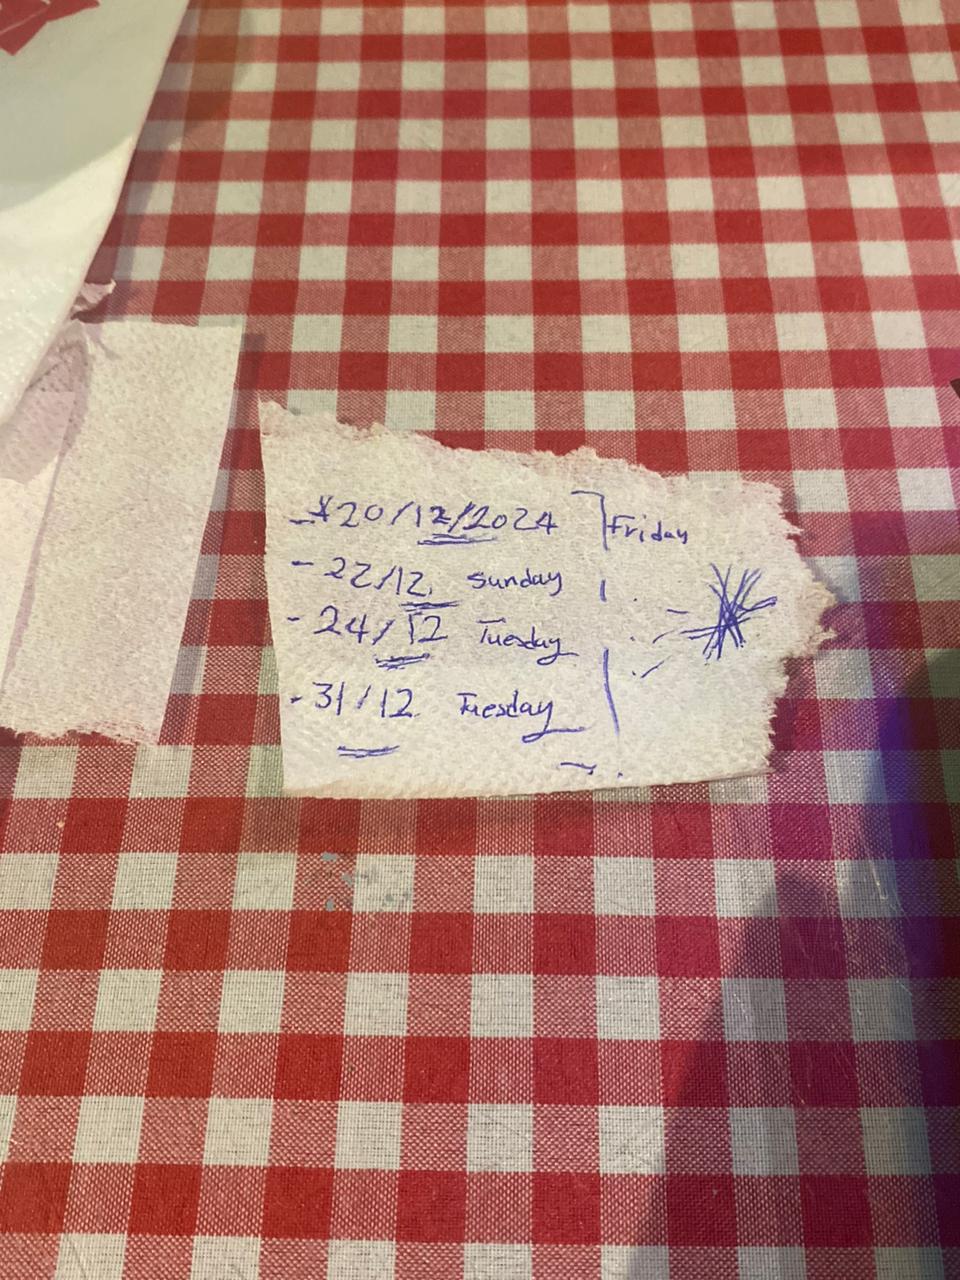 - 20/12/2024 Friday
- 22/12 Sunday
- 24/12 Tuesday
- 31/12 Tuesday